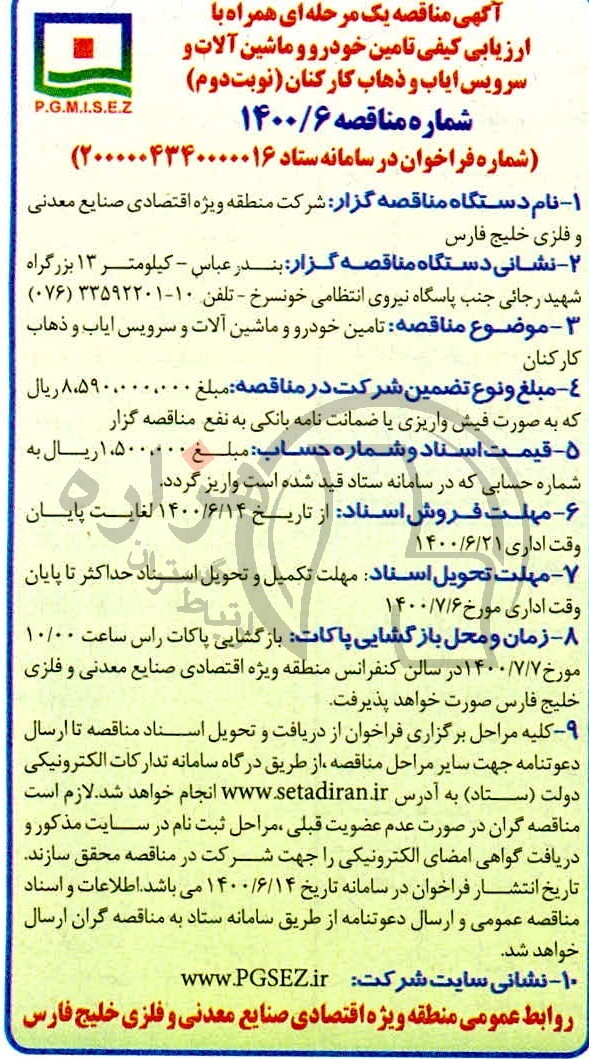 آگهی مناقصه یک مرحله ای همراه با
ارزیابی کیفی تامین خودرو و ماشین آلات و
سرویس ایاب و ذهاب کارکنان (نوبت دوم)
P.G.M.I.S.E.Z
شماره مناقصه ۱۴۰۰/۶
(شماره فراخوان در سامانه ستاد ۲۰۰۰۰۰۴۳۴۰۰۰۰۰۱۶)
۱-نام دستگاه مناقصه گزار: شرکت منطقه ویژه اقتصادی صنایع معدنی
و فلزی خلیج فارس
۲-نشانی دستگاه مناقصه گزار: بندر عباس - کیلومتر ۱۳ بزرگراه
شهید رجائی جنب پاسگاه نیروی انتظامی خونسرخ - تلفن ۱۰-۳۳۵۹۲۲۰۱ (۰۷۶)
۳-موضوع مناقصه: تامین خودرو و ماشین آلات و سرویس ایاب و ذهاب
کارکنان
۴-مبلغ و نوع تضمین شرکت در مناقصه: مبلغ ۸،۵۹۰،۰۰۰،۰۰۰ ریال
که به صورت فیش واریزی یا ضمانت نامه بانکی به نفع مناقصه گزار
۵-قیمت اسناد و شماره حساب: مبلغ ۱،۵۰۰،۰۰۰ ریال به
شماره حسابی که در سامانه ستاد قید شده است واریز گردد.
۶-مهلت فروش اسناد: از تاریخ ۱۴۰۰/۶/۱۴ لغایت پایان
وقت اداری ۱۴۰۰/۶/۲۱
۷-مهلت تحویل اسناد: مهلت تکمیل و تحویل اسناد حداکثر تا پایان
وقت اداری مورخ ۱۴۰۰/۷/۶
۸-زمان و محل بازگشایی پاکات: بازگشایی پاکات راس ساعت ۱۰/۰۰
مورخ ۱۴۰۰/۷/۷ در سالن کنفرانس منطقه ویژه اقتصادی صنایع معدنی و فلزی
خلیج فارس صورت خواهد پذیرفت.
۹-کلیه مراحل برگزاری فراخوان از دریافت و تحویل اسناد مناقصه تا ارسال
دعوتنامه جهت سایر مراحل مناقصه ،از طریق درگاه سامانه تدارکات الکترونیکی
دولت (ستاد) به آدرس www.setadiran.ir انجام خواهد شد.لازم است
مناقصه گران در صورت عدم عضویت قبلی ،مراحل ثبت نام در سایت مذکور و
دریافت گواهی امضای الکترونیکی را جهت شرکت در مناقصه محقق سازند.
تاریخ انتشار فراخوان در سامانه تاریخ ۱۴۰۰/۶/۱۴ می باشد.اطلاعات و اسناد
مناقصه عمومی و ارسال دعوتنامه از طریق سامانه ستاد به مناقصه گران ارسال
خواهد شد.
۱۰-نشانی سایت شرکت: www.PGSEZ.ir
روابط عمومی منطقه ویژه اقتصادی صنایع معدنی و فلزی خلیج فارس
هزاره
گستران
ارتباط